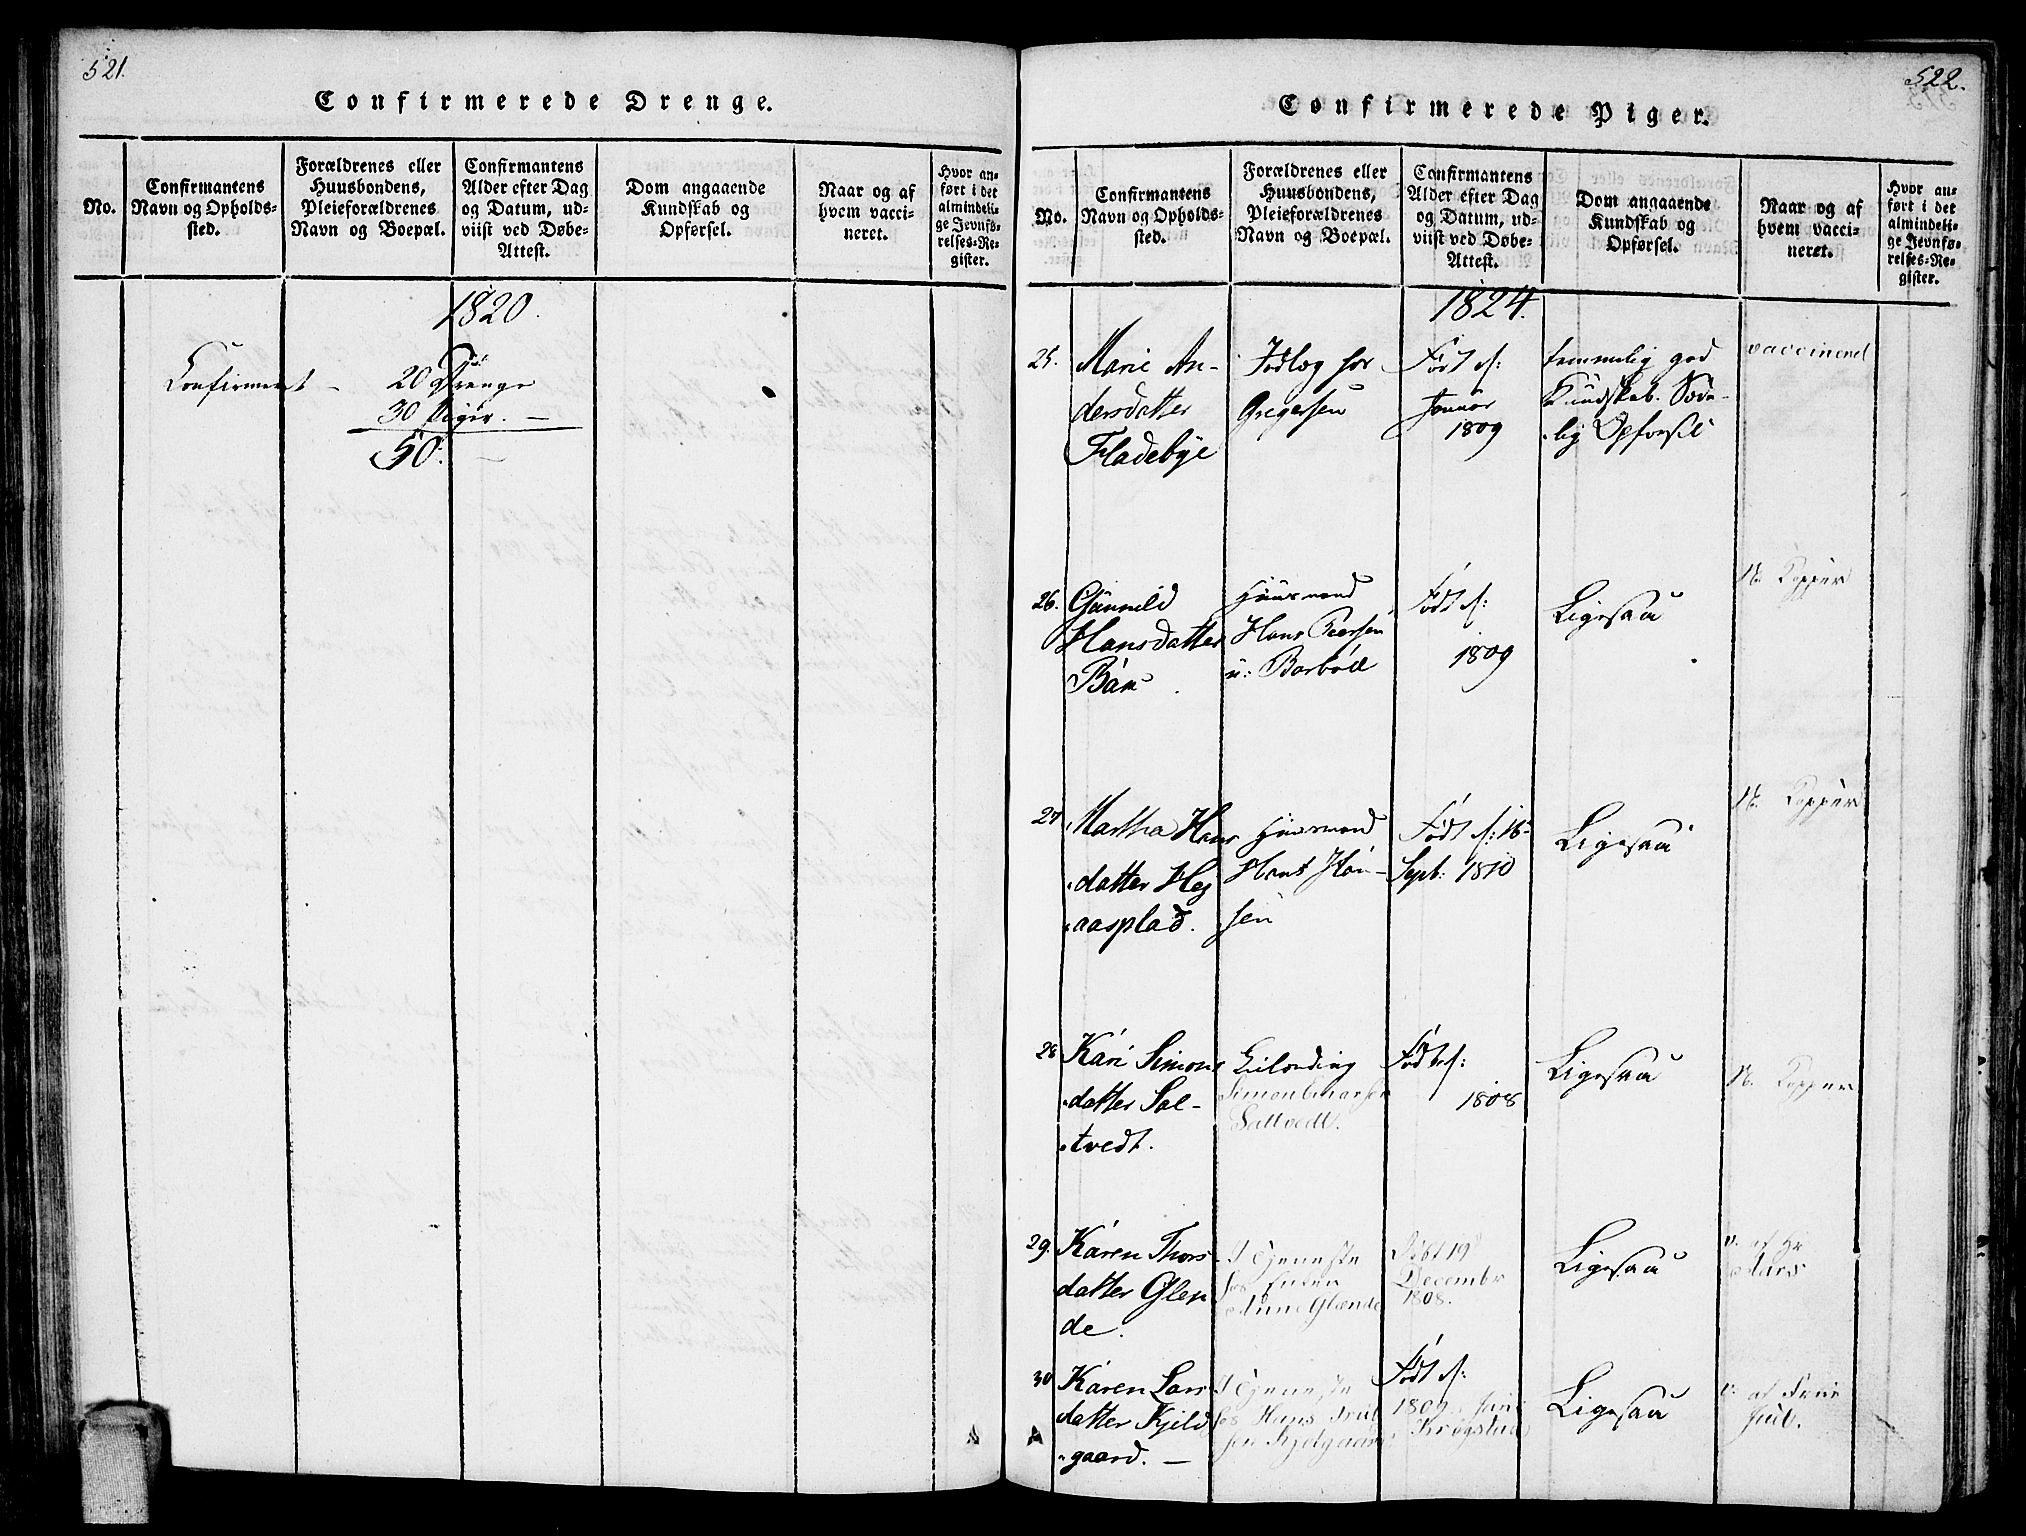 521.
Confirmerede Drenge.
No.
Confirmantens
Navn og Opholds-
sted.
Forældrenes eller
Huusbondens,
Pleieforældrenes
Navn og Boepæl.
Confirmantens
Alder efter Dag
og Datum, ud-
viist ved Døbe-
Attest.
Dom angaaende
Kundskab og
Opførsel.
Naar og af
hvem vacci-
neret.
Hvor an-
ført i det
almindeli-
ge Jevnfø-
relses-Re-
gister.
1820.
Confirmeret - 20 Drenge
30 Piger. -
50. -
522.
Confirmerede Piger.
No.
Confirmantens
Navn og Opholds-
sted.
Forældrenes eller
Huusbondens,
Pleieforældrenes
Navn og Boepæl.
Confirmantens
Alder efter Dag
og Datum, ud-
viist ved Døbe-
Attest.
Dom angaaende
Kundskab og
Opførsel.
Naar og af
hvem vacci-
neret.
Hvor an-
ført i det
almindeli-
ge Jevnfø-
relses-Re-
gister.
1824.
25. Marie An-
dersdatter
Fladebye
Gregersen
Født d:
Januar
1809
temmelig god
Kundskab. Sæde-
lig Opførsel
vaccineret
26. Gunnild
Hansdatter
Huusmand
Hans Peersen
Født d:
1809
Ligesaa
N. Kopper
27. Martha Hans
datter Hey
aasplad.
Huusmand
Hans Han-
sen
Født d: 16
Sept: 1810
Ligesaa
N. Kopper
28 Kari Simons
datter Sal-
tvedt.
Leilending
Simon
Saltvedt.
Født d:
1808
Ligesaa
N. Kopper
29. Karen Thors
datter Glen
de.
I Tjeneste
hos Enken
Anne Glende
Født 19
December
1808.
Ligesaa
v. af Hr
Aars
30 Karen Lars
datter Kjeld
gaard. -
I Tjeneste
hos Hans Trul
sen Kjelgaard
Født d:
1809
Krogstad
Ligesaa
v. af
Juul.